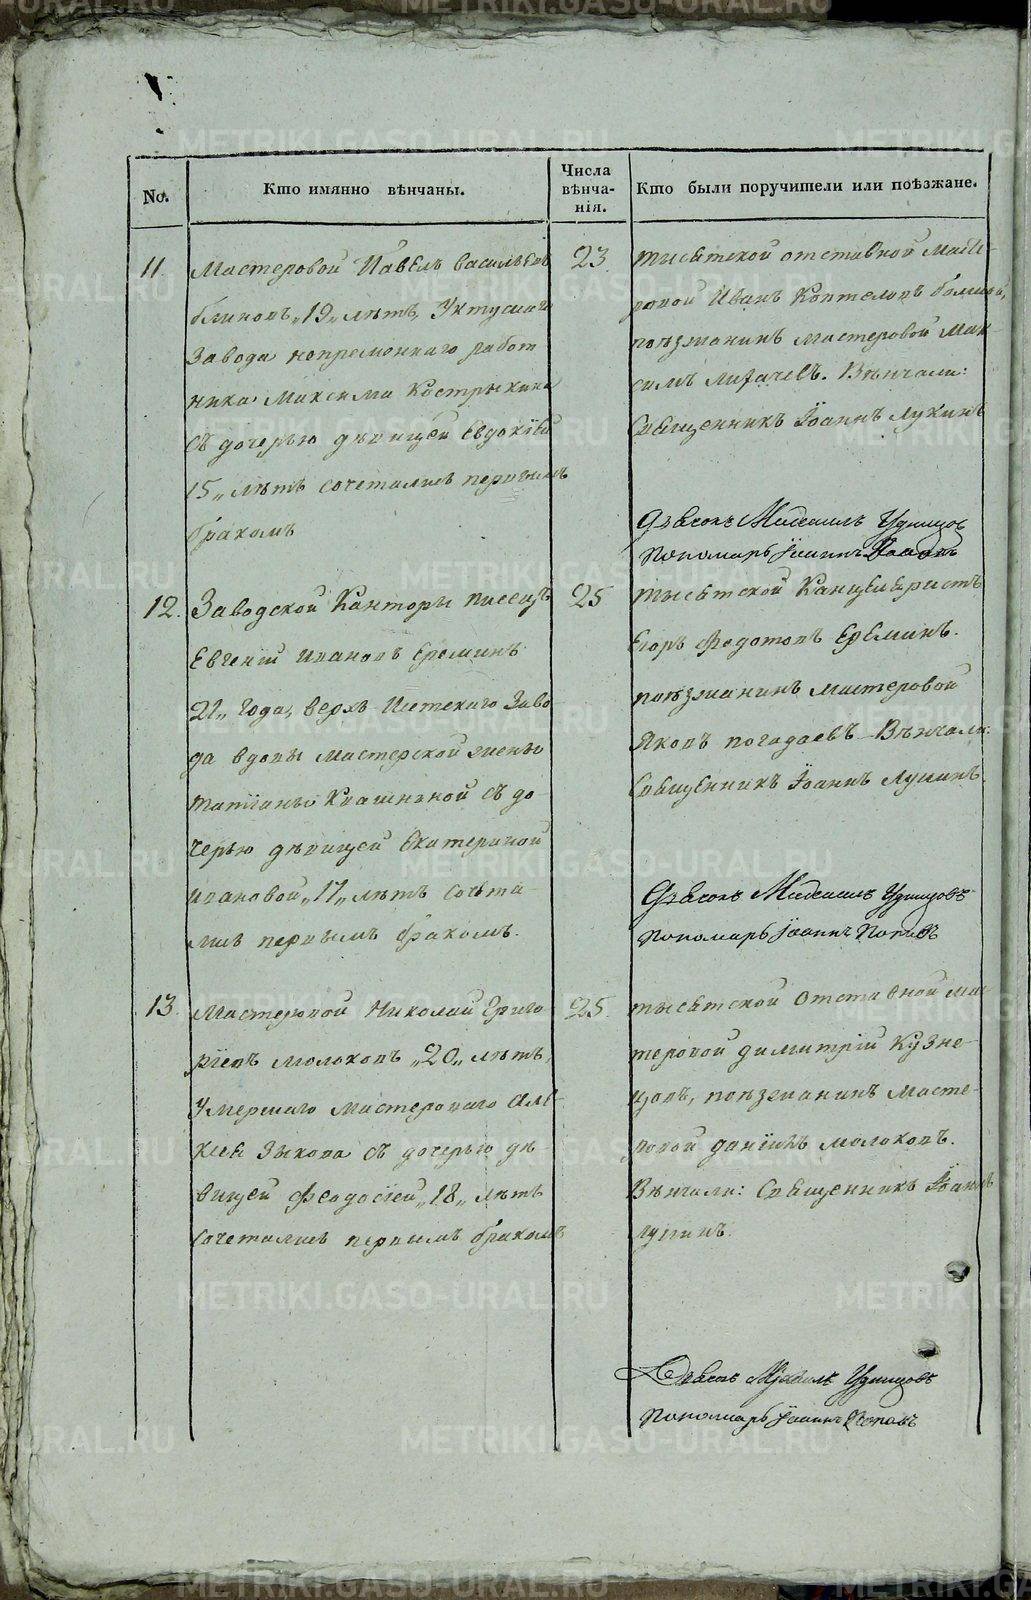 No.
Кто имянно вѣнчаны.
Числа
вѣнча-
нія.
Кто были поручители или поѣзжане.
11.
Мастеровой Павелъ Васильевъ
блиновъ „19„ лѣтъ, Уктускаго
Завода непременнаго работ
ника Максима Кострыкина
съ дочерью дѣвицей Евдокіей
15„ лѣтъ сочетались первымъ
бракомъ
23
тысятской отставной масте-
ровой Иванъ Коптеловъ
поѣзжанинъ мастеровой Мак
симъ лихачевъ. Вѣнчали:
Священникъ Іоаннъ Лукинъ
Дьяконъ Михаилъ Удинцов
Пономарь Іоаннъ Поповъ
12.
Заводской Канторы писецъ
Евгений Ивановъ Ереминъ
21„ года, верхъ Исетскаго Заво
да вдовы мастерской жены
татіаны Квашниной съ до
черью дѣвицей Екатериной
ивановой „17„ лѣтъ сочета-
лись первымъ бракомъ.
25
тысятской Канцеляристъ
Егоръ Федотовъ Ереминъ.
поѣзжанинъ мастеровой
Яковъ погадаевъ Вѣнчали:
Священникъ Іоаннъ Лукинъ.
Дьяконъ Михаилъ Удинцовъ
Пономарь Іоаннъ Поповъ
13.
Мастеровой Николай Григо
ріевъ молоковъ „20„ лѣтъ,
Умершаго мастероваго Але-
ксея Зыкова съ дочерью дѣ-
вицей Феодосіей „18„ лѣтъ
сочетались первымъ бракомъ
25.
тысятской отставной мас
теровой димитрій Кузне-
цовъ, поѣзжанинъ масте-
ровой данійлъ молоковъ.
Вѣнчали: Священникъ Іоаннъ
Лукинъ.
Дьяконъ Михаилъ Удинцовъ
Пономарь Іоаннъ Поповъ
METRIKI.GASO-URAL.RU